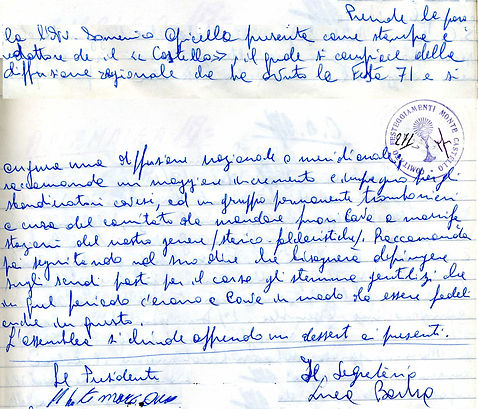 Prende la paro
la l'Ing. Domenico Apicella presente come stampa e
redattore de il "Castello", il quale si compiace della
diffusione regionale che ha avuto la Festa 71 e si
FESTEGGIAMENTI MONTE CASTELLO
COMITATO
augura una diffusione nazionale o meridionale,
raccomanda un maggiore incremento e impegno per gli
sbandieratori cavesi, ed un gruppo permanente trombonieri
a cura del comitato da mandare fuori Cava a manife
stazioni del nostro genere (storico-folkloristiche). Raccomanda
poi seguitando nel suo dire che bisognerà dipingere
sugli scudi posti per il corso gli stemmi gentilizi che
in quel periodo c'erano a Cava in modo da essere fedeli
anche in questo.
L'assemblea si chiude offrendo un dessert ai presenti.
Il Presidente
Il Segretario
Luca Barba